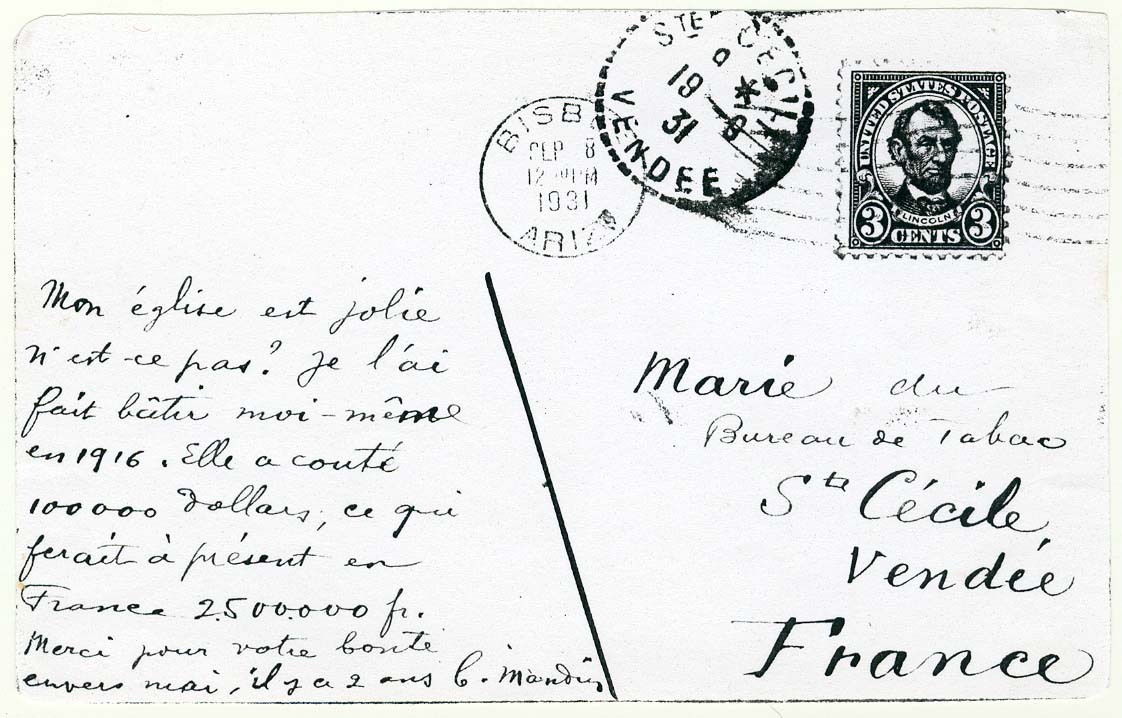 STE CECILE
19 * 9
31
VENDEE
BISB
SEP 8
12 PM
1931
ARIZ
UNITED STATES POSTAGE
LINCOLN
3 CENTS 3
Mon église est jolie
n'est-ce pas? Je l'ai
fait bâtir moi-même
en 1916. Elle a couté
100000 Dollars, ce qui
ferait à présent en
France 2.500.000 fr.
Merci pour votre bonté
envers moi, il y a 2 ans C. Mandin
Marie du
Bureau de Tabac
Ste Cécile
Vendée
France